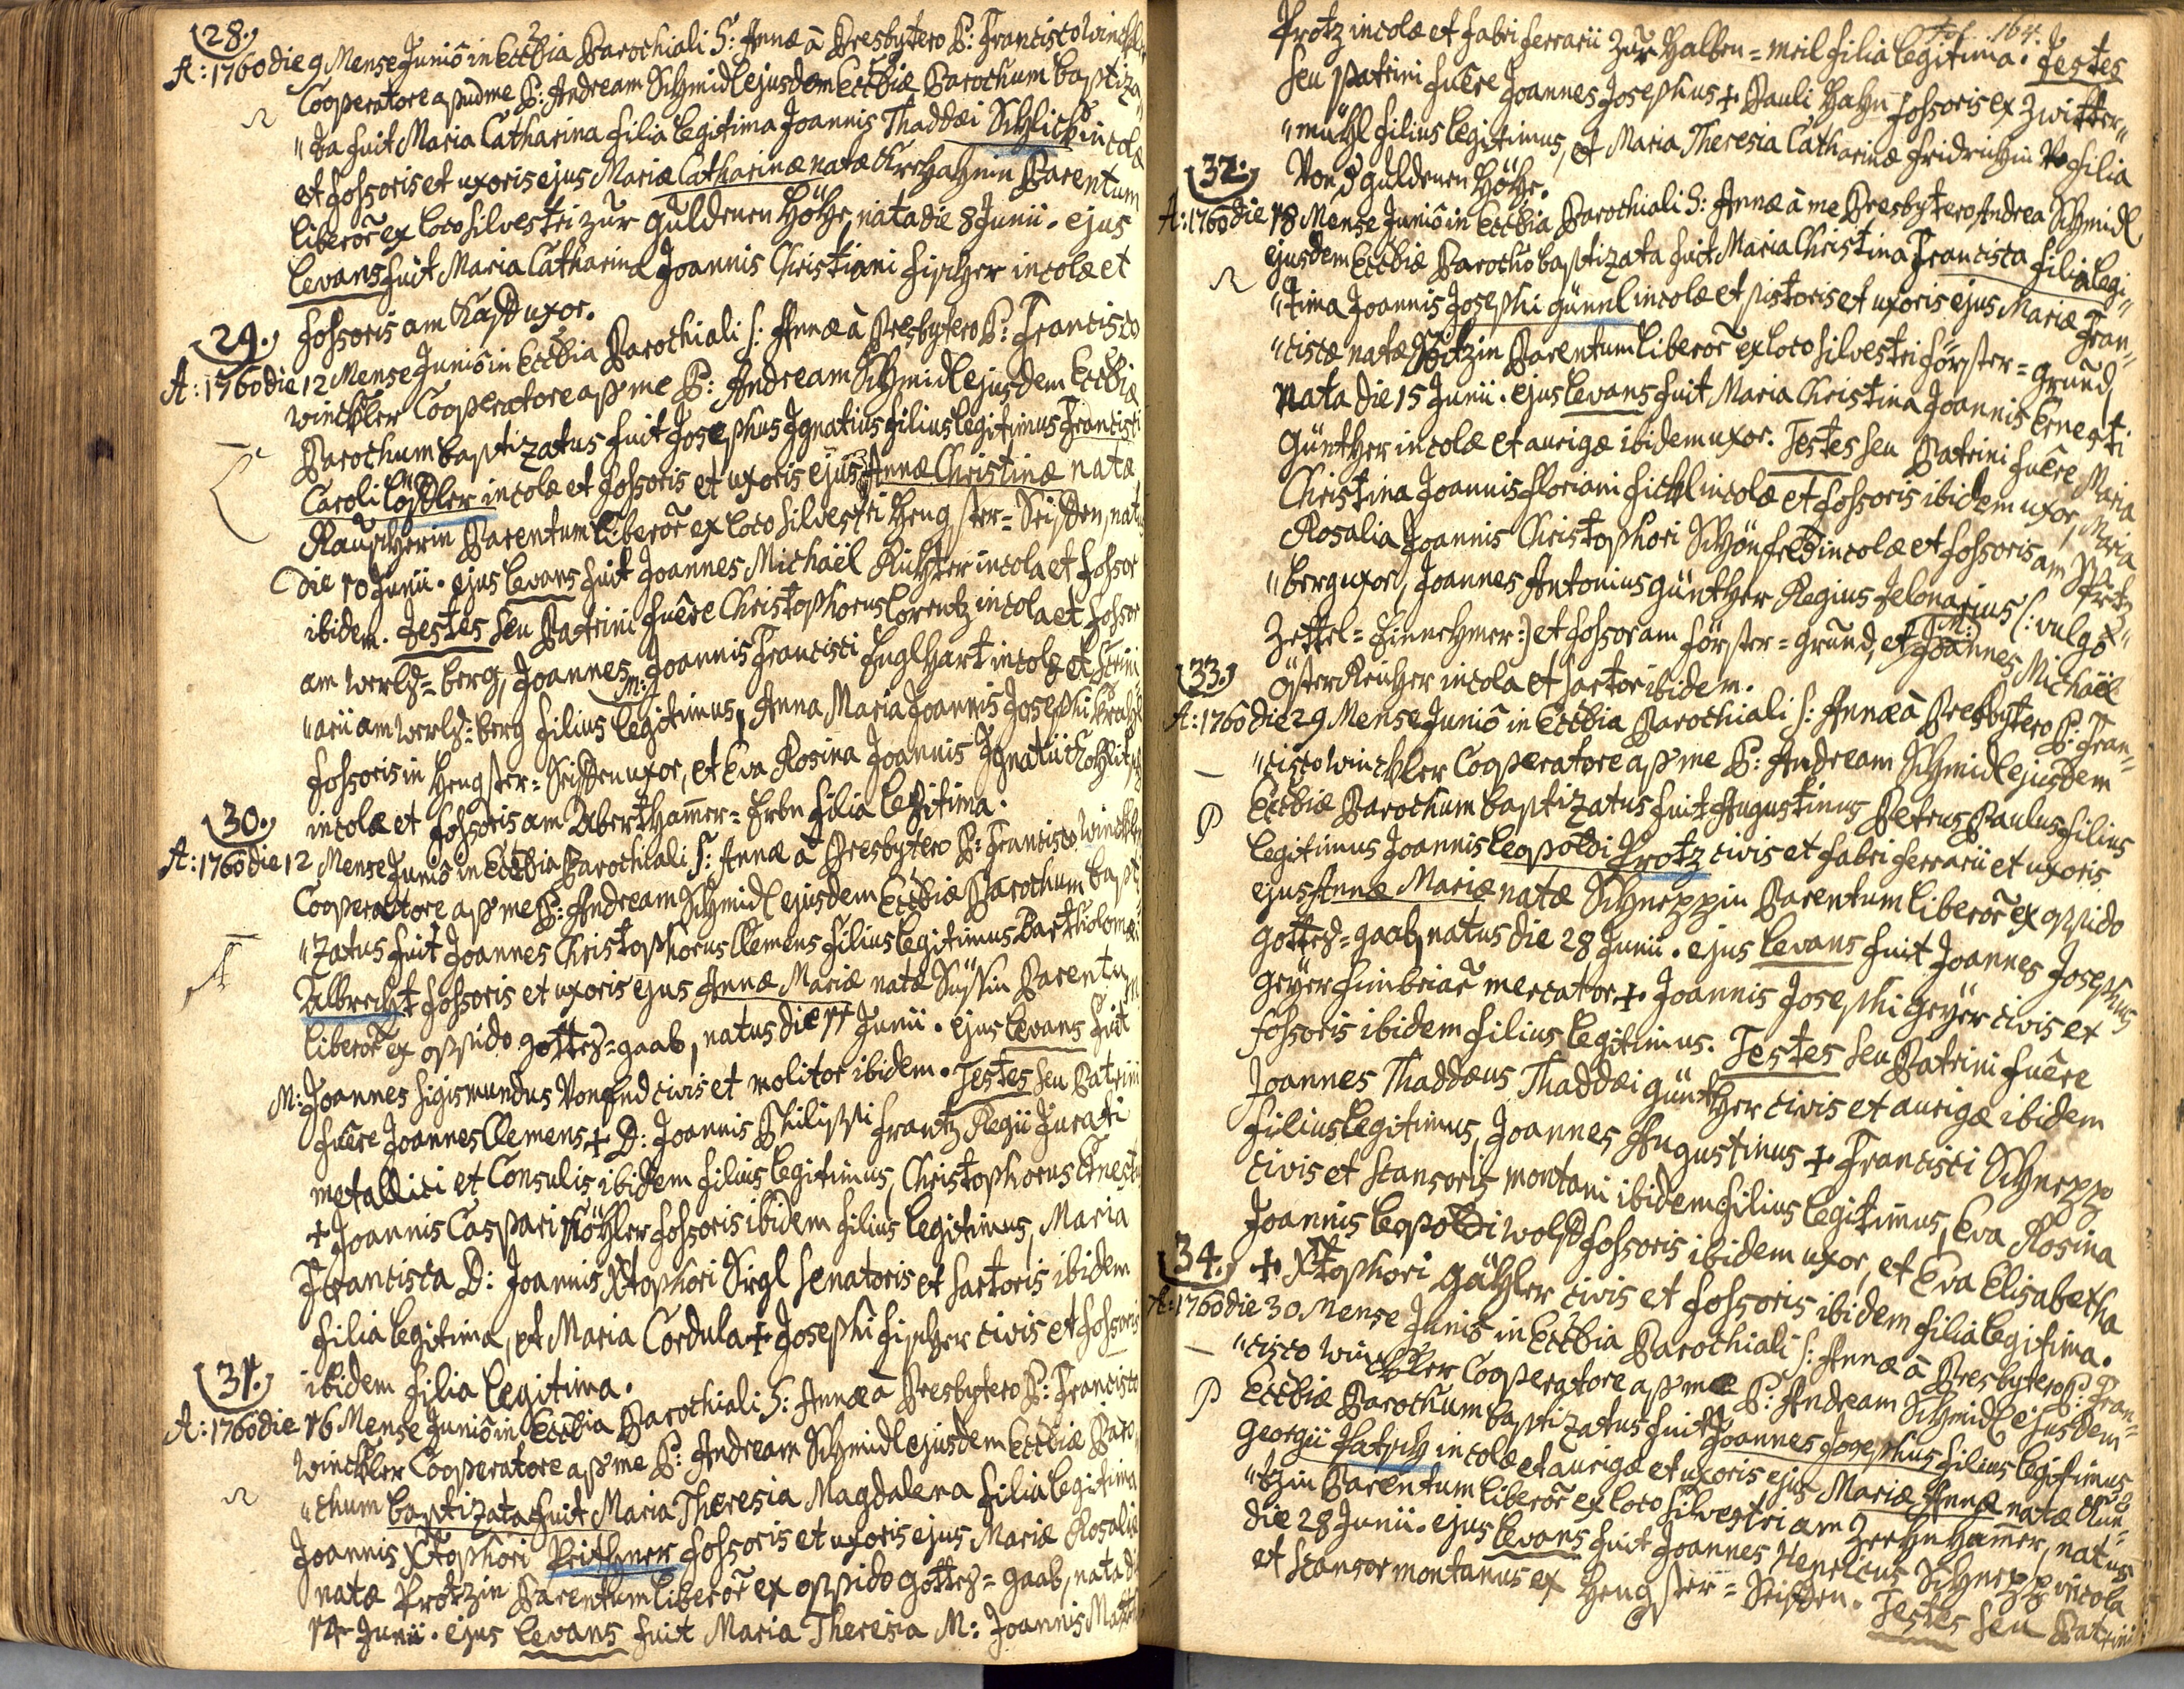 28.
A: 1760 die 9 Mense Juniô in Ecclbia Parochiali S: Annæ à Presbytero P: Francisco Winckler
Cooperatore apud me P: Andream Schmidl ejusdem Ecclbiæ Parochum baptiza-
"ta fuit Maria Catharina filia legitima Joannis Thaddæi Schlick incolæ
et fossoris et uxoris ejus Mariæ Catharinæ natæ Parentum
liberor ex loco silvestri zur guldenen Höhe, nata die 8 Junii. ejus
Levans fuit Maria Catharina Joannis Christiani Fischer incolæ et
fossoris am uxor.
29.
A: 1760 die 12 Mense Juniô in Ecclbia Parochiali S: Annæ à Presbytero P: Francisco
Winckler Cooperatore ap me P: Andream Schmidl ejusdem Ecclbiæ
Parochum baptizatus fuit Josephus Ignatius filius legitimus Francisci
Caroli Löstler incolæ et fossoris et uxoris ejus Annæ Christinæ natæ
Rauscherin Parentum liberor ex loco silvestri Hengster=Seiffen, natus
die 10 Junii. ejus Levans fuit Joannes Michaël Richter incola et fossor
ibidem. Testes seu Patrini fuêre Christophorus Lorentz incola et fossor
am berg, Joannes M: Joannis Francisci Englhart incolæ et
"arii am berg filius legitimus, Anna Maria Joannis Josephi
fossoris in Hengster=Seiffen uxor, et Eva Rosina Joannis Ignatii
incolæ et fossoris am Aberthammer=Erbn filia legitima.
30.
A: 1760 die 12 Mense Juniô in Ecclbia Parochiali S: Annæ à Presbytero P: Francisco Winckler
Cooperatore ap me P: Andream Schmidl ejusdem Ecclbiæ Parochum bapti-
"zatus fuit Joannes Christophorus Clemens filius legitimus Bartholomæi
Albrecht fossoris et uxoris ejus Annæ Mariæ natæ Süssin Parentum
liberor ex oppido gottes=gaab, natus die 11 Junii. ejus Levans fuit
M: Joannes Sigismundus civis et molitor ibidem. Testes seu Patrini
fuêre Joannes Clemens + D: Joannis Philippi Frantz Regii Jurati
metallici et Consulis ibidem filius legitimus, Christophorus
+ Joannis Caspari Köhler fossoris ibidem filius legitimus, Maria
Francisca D: Joannis Xtophori Sirgl Senatoris et sartoris ibidem
filia legitima, et Maria Cordula + Josephi Fischer civis et fossoris
ibidem filia legitima.
31.
A: 1760 die 16 Mense Juniô in Ecclbia Parochiali S: Annæ à Presbytero P: Francisco
Winckler Cooperatore ap me P: Andream Schmidl ejusdem Ecclbiæ Paro-
"chum baptizata fuit Maria Theresia Magdalena filia legitima
Joannis Xtophori fossoris et uxoris ejus Mariæ Rosaliæ
natæ Protzin Parentum liberor ex oppido gottes=gaab, nata die
14 Junii. ejus Levans fuit Maria Theresia M: Joannis
fol. 164.
Protz incolæ et fabri ferrarii zur Halben=meil filia legitima. Testes
seu Patrini fuêre Joannes Josephus + Pauli Hahn fossoris ex Zwitter-
"mühl filius legitimus, et Maria Theresia Catharinæ Fridrichin filia
Von d guldenen Höhe.
32.
A: 1760 die 18 Mense Juniô in Ecclbia Parochiali S: Annæ à me Presbytero Andrea Schmidl
ejusdem Ecclbiæ Parocho baptizata fuit Maria Christina Francisca filia legi-
"tima Joannis Josephi Günnl incolæ et pistoris et uxoris ejus Mariæ Fran-
"ciscæ natæ Parentum liberor ex loco silvestri Förster=grund,
nata die 15 Junii. ejus Levans fuit Maria Christina Joannis Ernesti
Günther incolæ et aurigæ ibidem uxor. Testes seu Patrini fuêre Maria
Christina Joannis Floriani Fickl incolæ et fossoris ibidem uxor, Maria
Rosalia Joannis Christophori incolæ et fossoris am
"berg uxor, Joannes Antonius Günther Regius Telonarius (: vulgò
Zettel=Einnehmer:) et fossor am Förster=grund, et M: Joannes Michaël
Österreicher incola et sartor ibidem.
33.
A: 1760 die 29 Mense Juniô in Ecclbia Parochiali S: Annæ à Presbytero P: Fran-
"cisco Winckler Cooperatore ap me P: Andream Schmidl ejusdem
Ecclbiæ Parochum baptizatus fuit Augustinus Petrus Paulus filius
legitimus Joannis Leopoldi Protz civis et fabri ferrarii et uxoris
ejus Annæ Mariæ natæ Schneppin Parentum liberor ex oppido
gottes=gaab, natus die 28 Junii. ejus Levans fuit Joannes Josephus
Geyer fimbriar mercator + Joannis Josephi Geyer civis et
fossoris ibidem filius legitimus. Testes seu Patrini fuêre
Joannes Thaddæus Thaddæi Günther civis et aurigæ ibidem
filius legitimus, Joannes Augustinus + Francisci Schnepp
civis et scansoris montani ibidem filius legitimus, Eva Rosina
Joannis Leopoldi fossoris ibidem uxor, et Eva Elisabetha
+ Xtophori Gähler civis et fossoris ibidem filia legitima.
34.
A: 1760 die 30 Mense Juniô in Ecclbia Parochiali S: Annæ à Presbytero P: Fran-
"cisco Winckler Cooperatore ap me P: Andream Schmidl ejusdem
Ecclbiæ Parochum baptizatus fuit Joannes Josephus filius legitimus
Georgii incolæ et aurigæ et uxoris ejus Mariæ Annæ natæ
"tzin Parentum liberor ex loco silvestri am hammer, natus
die 28 Junii. ejus Levans fuit Joannes Henricus Schnepp incola
et scansor montanus ex Hengster=Seiffen. Testes seu Patrini